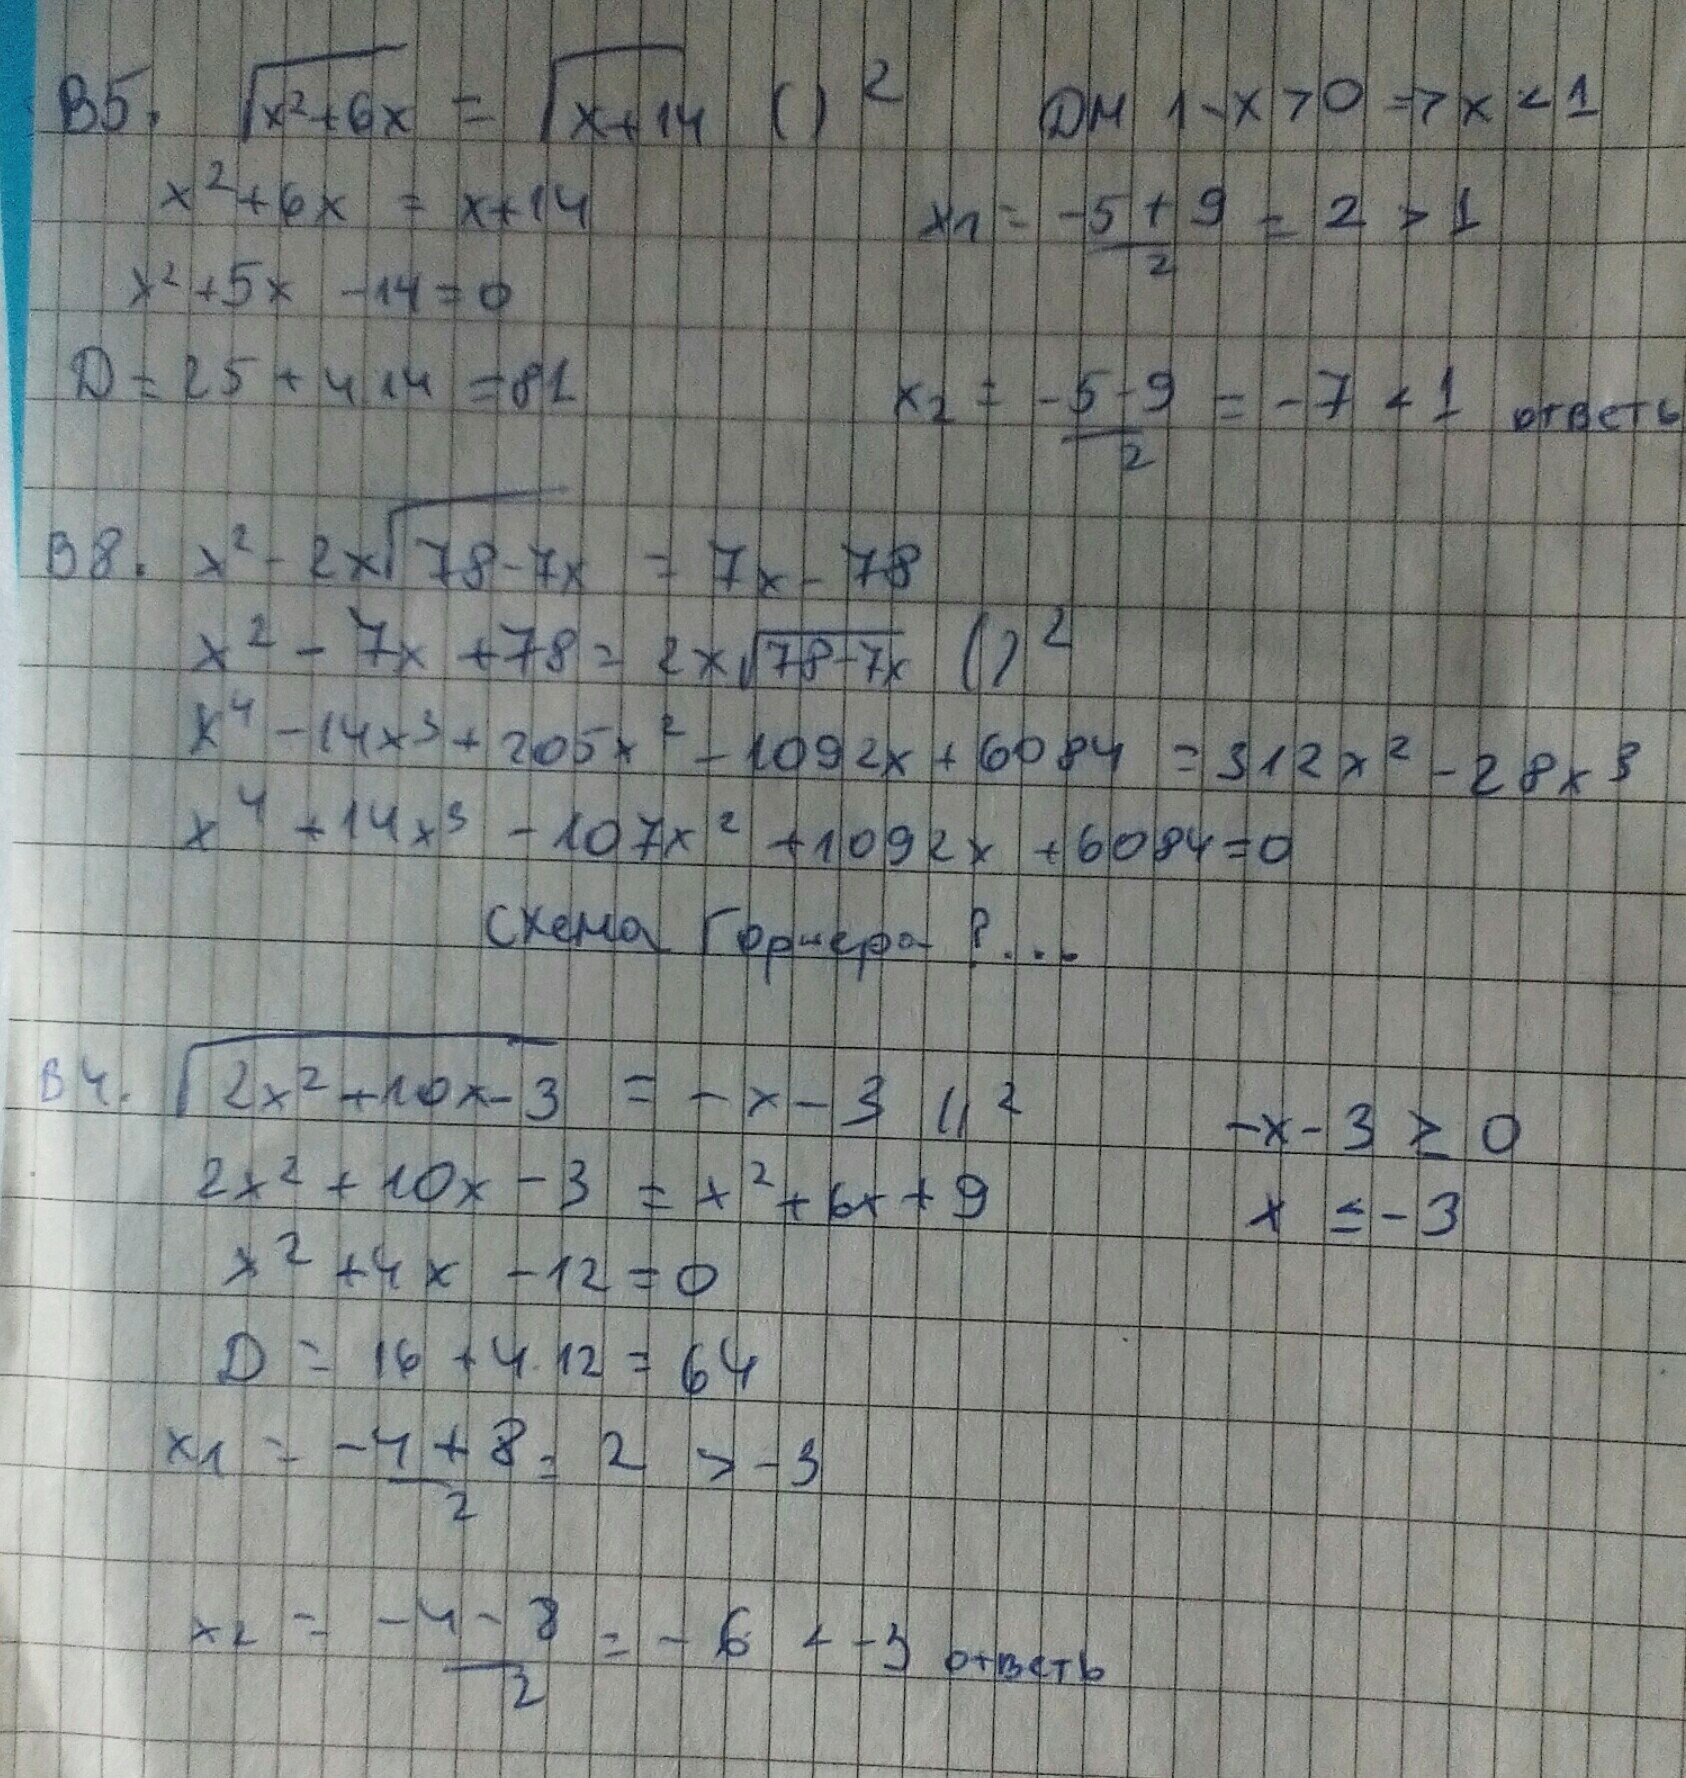 B5. √(x²+6x) = √(x+14) ( )² DM 1-x>0 => x<1
x²+6x = x+14 x₁ = (-5+9)/2 = 2 > 1
x²+5x -14=0
D = 25 + 4·14 =81 x₂ = (-5-9)/2 = -7 < 1 ответь
B8. x² - 2x√(78-7x) = 7x - 78
x² - 7x +78 = 2x√(78-7x) ( )²
x⁴ -14x³+ 205x² -1092x +6084 = 312x² -28x³
x⁴ +14x³ -107x² +1092x +6084=0
Схема Горнера ?...
B4. √(2x²+10x-3) = -x-3 ( )² -x-3 ≥ 0
2x²+10x-3 = x²+6x+9 x ≤ -3
x²+4x -12=0
D = 16 +4·12 = 64
x₁ = (-4+8)/2 = 2 > -3
x₂ = (-4-8)/2 = -6 < -3 ответь